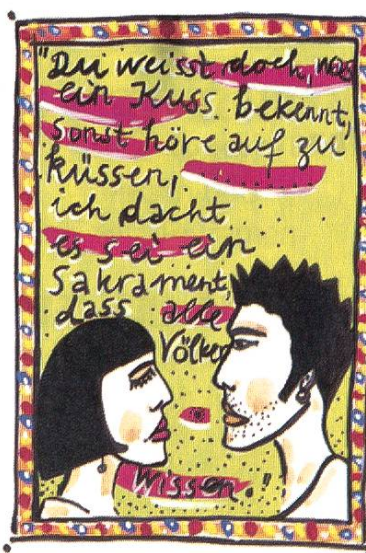 "Du weisst doch, was
ein Kuss bekennt,
sonst höre auf zu
küssen,
ich dacht
es sei ein
Sakrament,
dass alle
Völker
wissen."